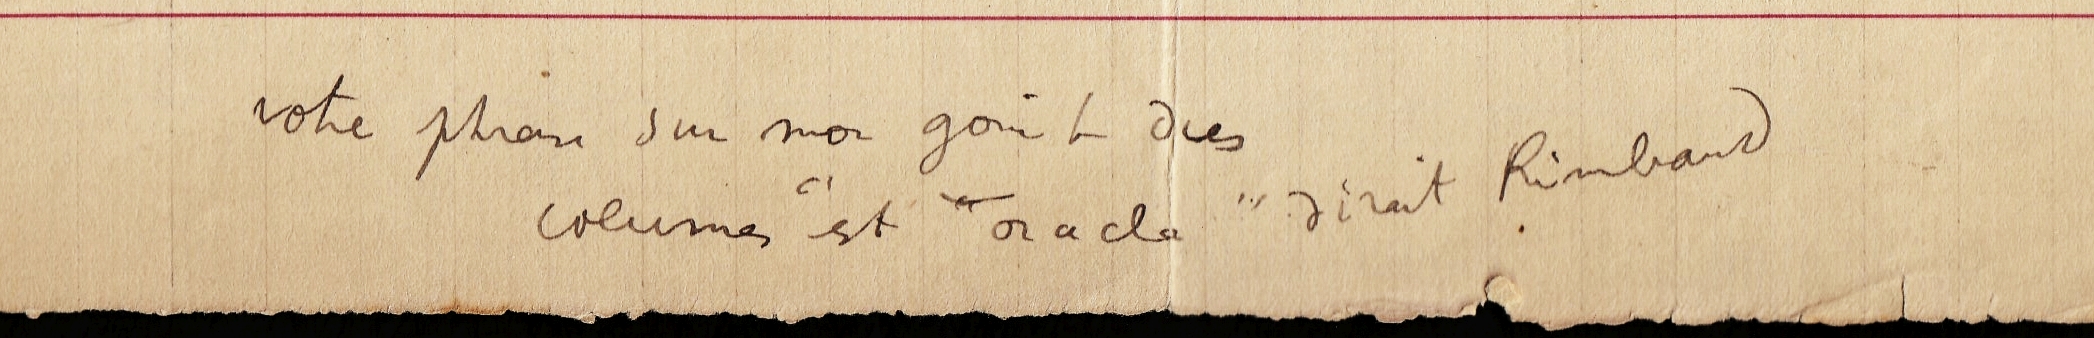 votre phrase sur mon goût des
colonnes "est "oracle" dirait Rimbaud